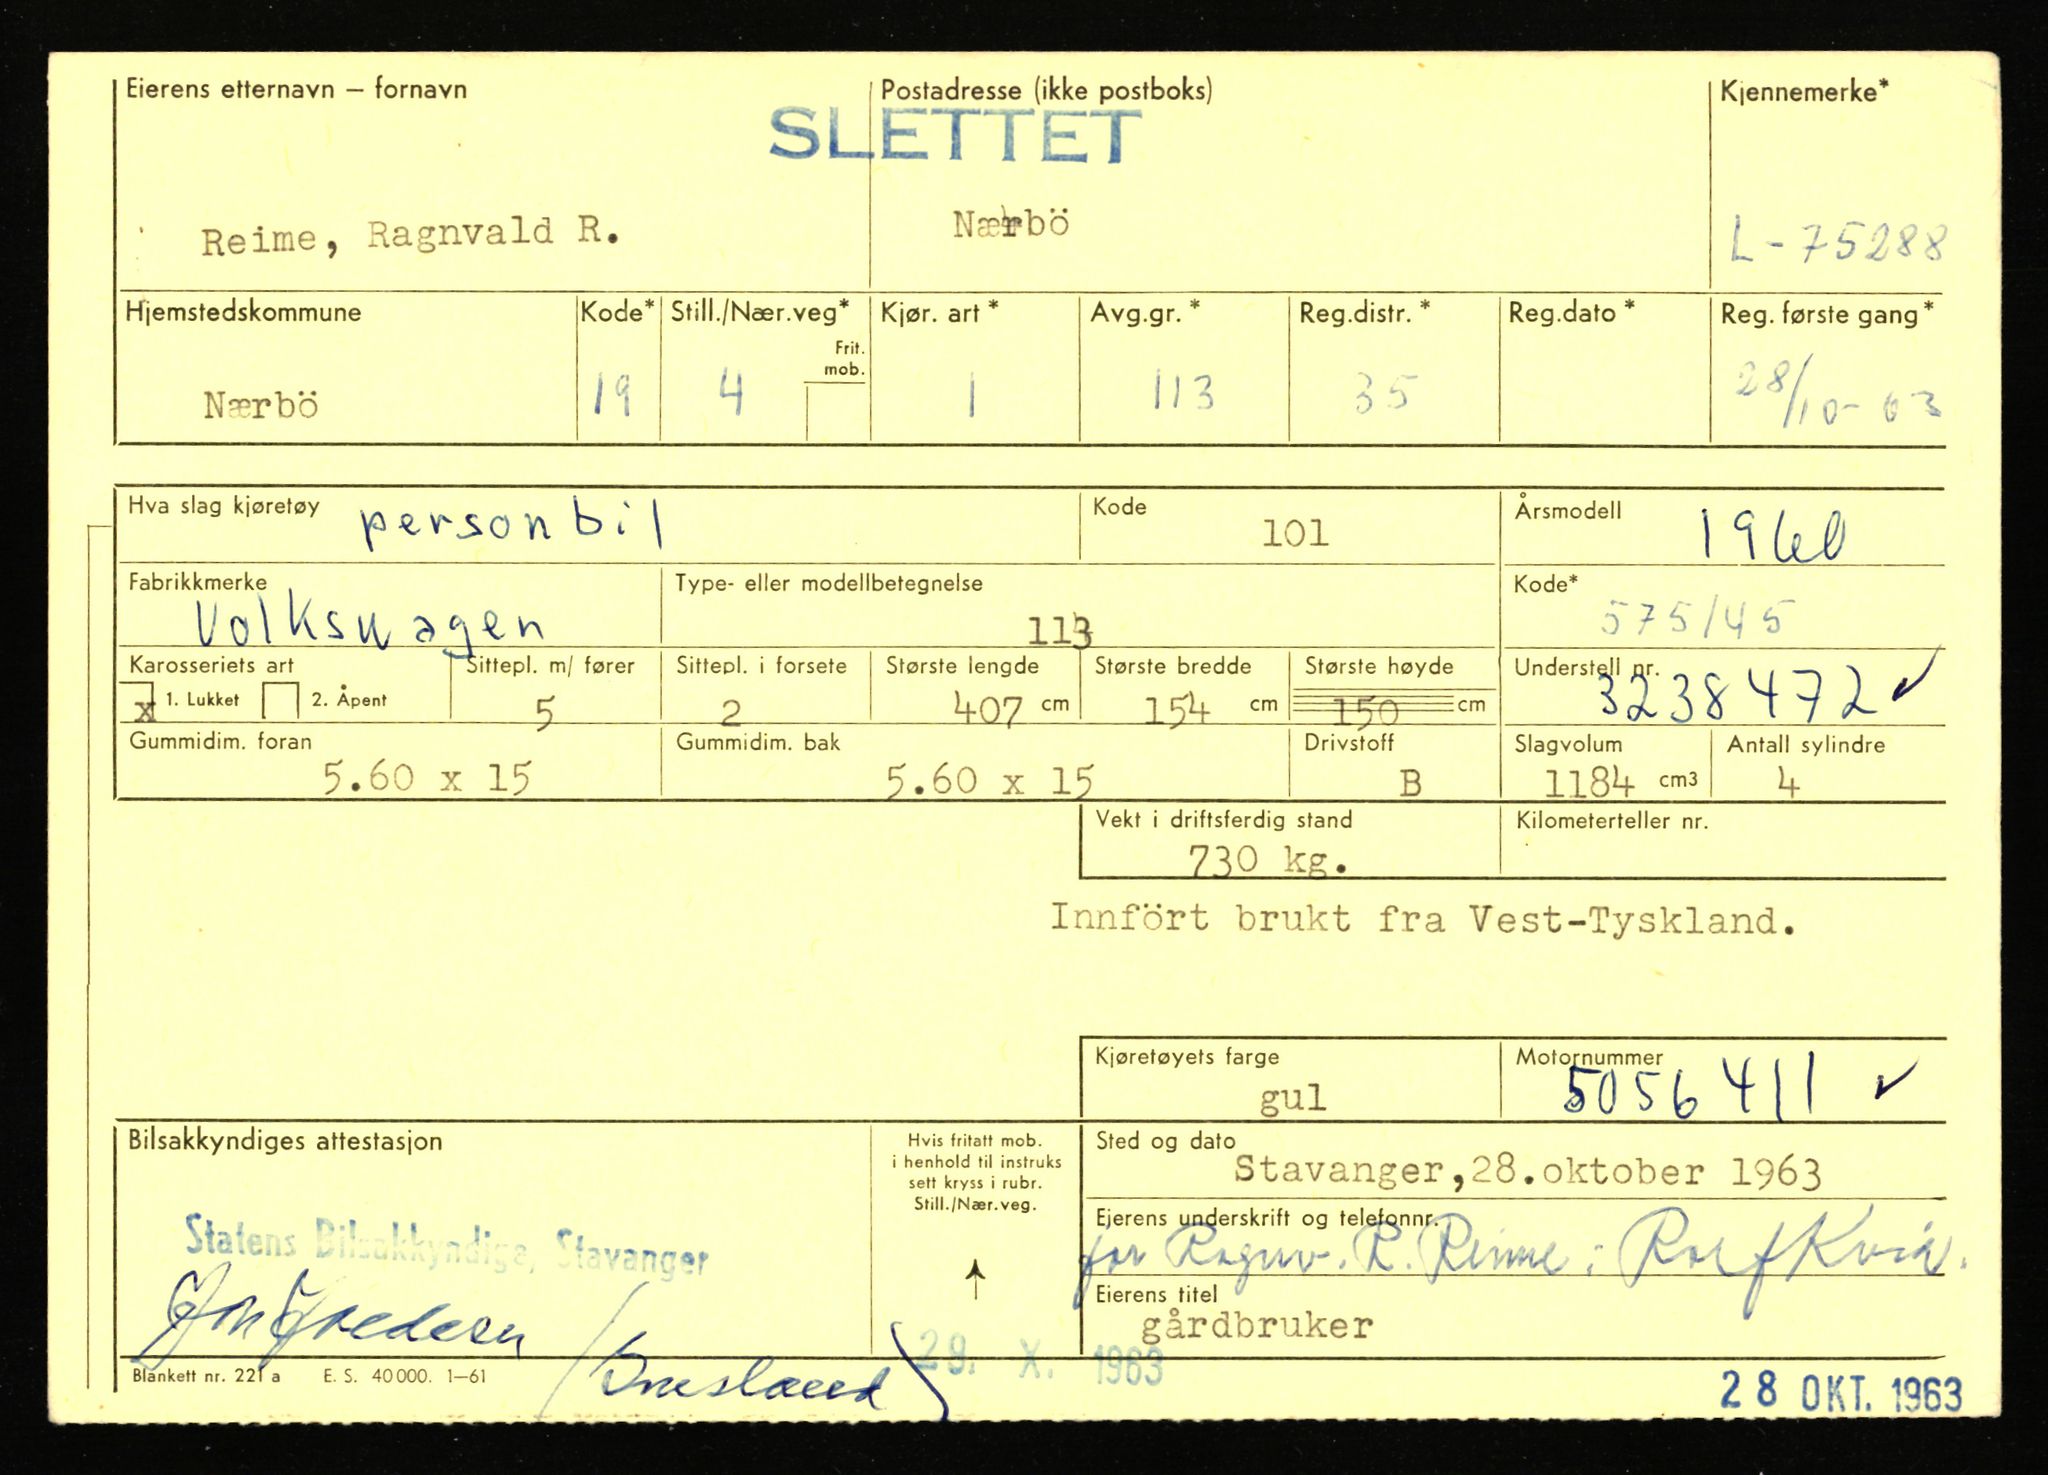 Eierens etternavn – fornavn Postadresse (ikke postboks) Kjennemerke*
SLETTET
Reime, Ragnvald R. Nærbö L-75288
Hjemstedskommune Kode* Still./Nær.veg* Kjør. art* Avg.gr.* Reg.distr.* Reg.dato* Reg. første gang*
Frit.
mob.
Nærbö 19 4 1 113 35 28/10-63
Hva slag kjøretøy personbil Kode 101 Årsmodell 1960
Fabrikkmerke Type- eller modellbetegnelse Kode*
Volkswagen 113 575/45
Karosseriets art Sittepl. m/ fører Sittepl. i forsete Største lengde Største bredde Største høyde Understell nr.
x 1. Lukket 2. Åpent 5 2 407 cm 154 cm 150 cm 3238472 ✓
Gummidim. foran Gummidim. bak Drivstoff Slagvolum Antall sylindre
5.60 x 15 5.60 x 15 B 1184 cm3 4
Vekt i driftsferdig stand Kilometerteller nr.
730 kg.
Innfört brukt fra Vest-Tyskland.
Kjøretøyets farge Motornummer
gul 5056411 ✓
Bilsakkyndiges attestasjon Hvis fritatt mob. Sted og dato
i henhold til instruks
sett kryss i rubr.
Still./Nær.veg.
Stavanger,28.oktober 1963
Eierens underskrift og telefonnr.
Statens Bilsakkyndige, Stavanger
for Ragnv. R. Reime: Rolf Kvia.
Eierens titel
gårdbruker
29. X. 1963
Blankett nr. 221 a E. S. 40 000. 1–61
28 OKT. 1963